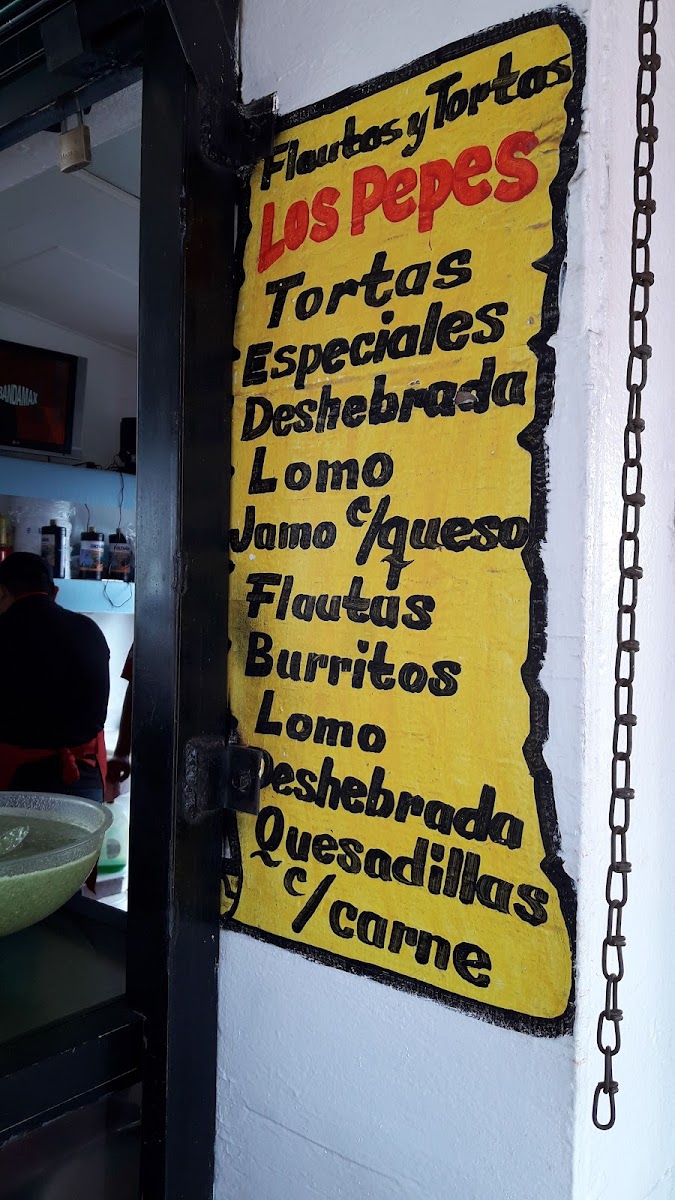 BANDAMAX
Flautas y Tortas
Los Pepes
Tortas
Especiales
Deshebrada
Lomo
Jamo c/queso
Flautas
Burritos
Lomo
Deshebrada
Quesadillas
c/carne